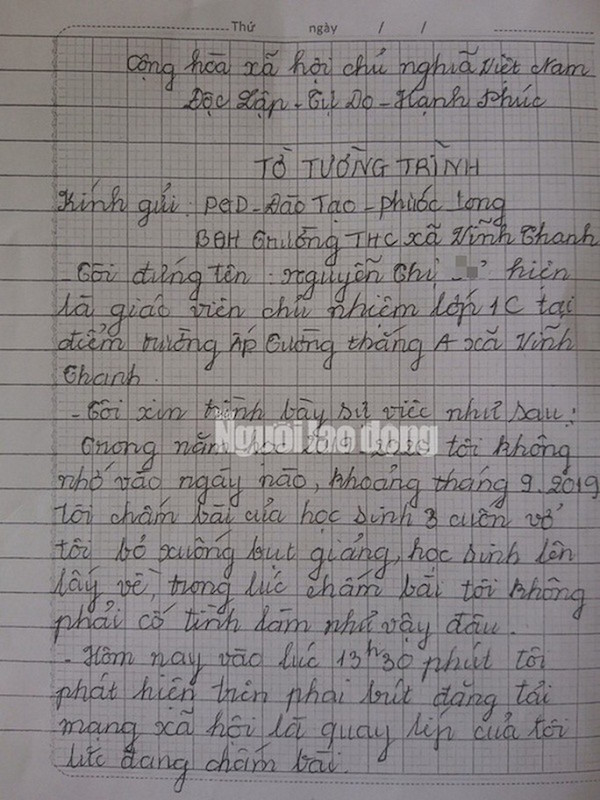 Thứ ngày / /
Cộng hòa xã hội chủ nghĩa Việt Nam
Độc Lập - Tự Do - Hạnh Phúc
TỜ TƯỜNG TRÌNH
Kính gửi: PGD - Đào Tạo - Phước Long
BGH Trường THC xã Vĩnh Thanh
- Tôi đứng tên: Nguyễn Thị hiện
là giáo viên chủ nhiệm lớp 1C tại
điểm trường Ấp Tường thắng A xã Vĩnh
Thanh.
- Tôi xin trình bày sự việc như sau:
Người lao động
Trong năm học 2019-2020 tôi không
nhớ vào ngày nào, khoảng tháng 9.2019
tôi chấm bài của học sinh 3 cuốn vở
tôi bỏ xuống bục giảng, học sinh lên
lấy về, trong lúc chấm bài tôi không
phải cố tình làm như vậy đâu.
- Hôm nay vào lúc 13h30 phút tôi
phát hiện trên phai bút đăng tải
mạng xã hội là quay líp của tôi
lúc đang chấm bài.